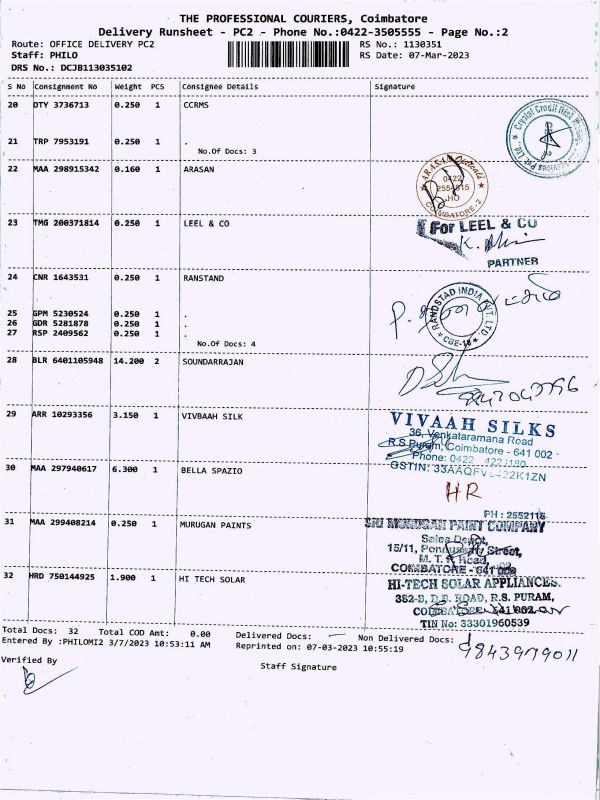 THE PROFESSIONAL COURIERS, Coimbatore
Delivery Runsheet - PC2 - Phone No.:0422-3505555 - Page No.:2
Route: OFFICE DELIVERY PC2 RS No.: 1130351
Staff: PHILO RS Date: 07-Mar-2023
DRS No.: DCJB113035102
S No Consignment No Weight PCS Consignee Details Signature
20 DTY 3736713 0.250 1 CCRMS
21 TRP 7953191 0.250 1 .
No.Of Docs: 3
22 MAA 298915342 0.160 1 ARASAN
ARASAN
0422
HO
COIMBATORE-2
23 TMG 200371814 0.250 1 LEEL & CO
For LEEL & CO
PARTNER
24 CNR 1643531 0.250 1 RANSTAND
RANDSTAD INDIA PVT. LTD.
25 GPM 5230524 0.250 1 .
26 GDR 5281878 0.250 1 .
27 RSP 2409562 0.250 1 .
No.Of Docs: 4
28 BLR 6401105948 14.200 2 SOUNDARRAJAN
29 ARR 10293356 3.150 1 VIVBAAH SILK
VIVAAH SILKS
36, Venkataramana Road
R.S Puram, Coimbatore - 641 002
Phone: 0422
GSTIN:
30 MAA 297940617 6.300 1 BELLA SPAZIO
HR
31 MAA 299408214 0.250 1 MURUGAN PAINTS
SRI MURUGAN PAINT COMPANY
Sales Depot,
15/11, Street,
M. T. Road,
COIMBATORE
32 HRD 750144925 1.900 1 HI TECH SOLAR
HI-TECH SOLAR APPLIANCES.
382-B, D.B. ROAD, R.S. PURAM,
TIN No: 33301960539
Total Docs: 32 Total COD Amt: 0.00 Delivered Docs: Non Delivered Docs:
Entered By :PHILOMI2 3/7/2023 10:53:11 AM Reprinted on: 07-03-2023 10:55:19
9843979011
Verified By
Staff Signature